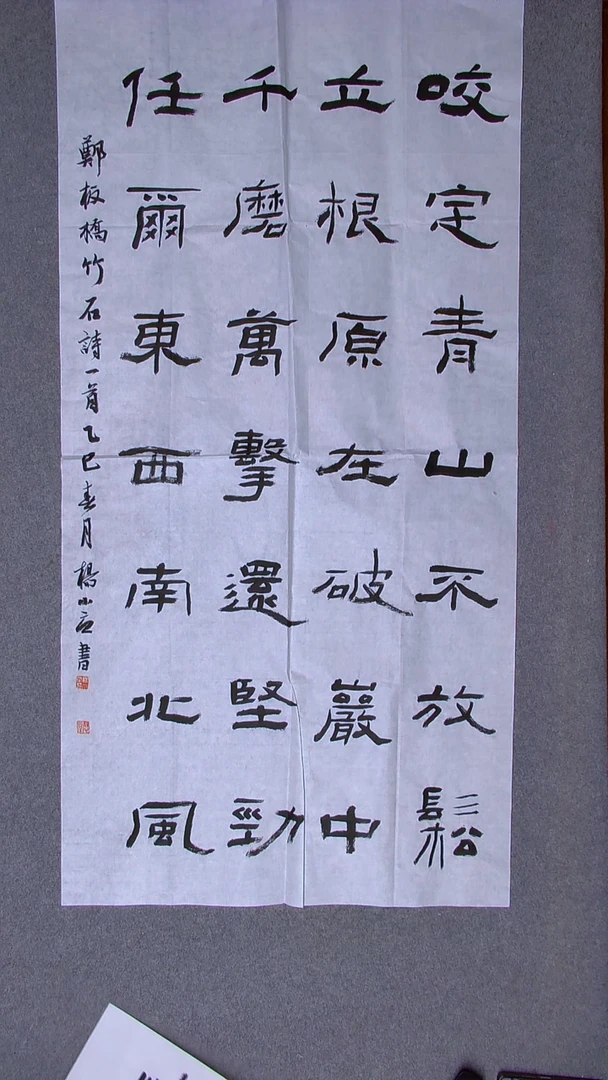 咬定青山不放鬆
立根原在破巖中
千磨萬擊還堅勁
任爾東西南北風
鄭板橋竹石詩一首乙巳春月楊小 書